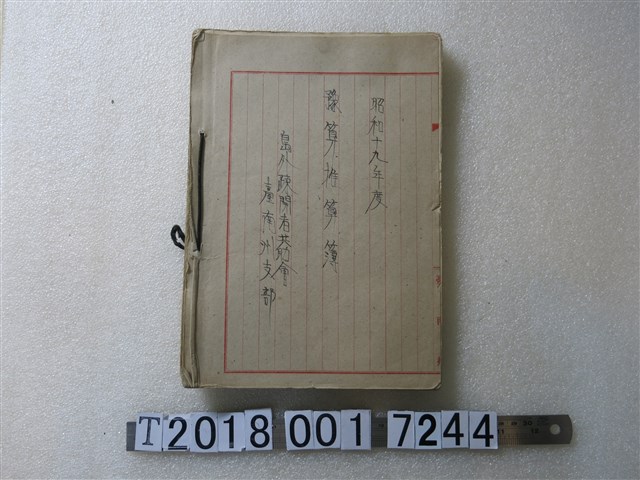 昭和十九年度
豫算推算簿
島外疎開者共助會
臺南州支部
T2018 001 7244